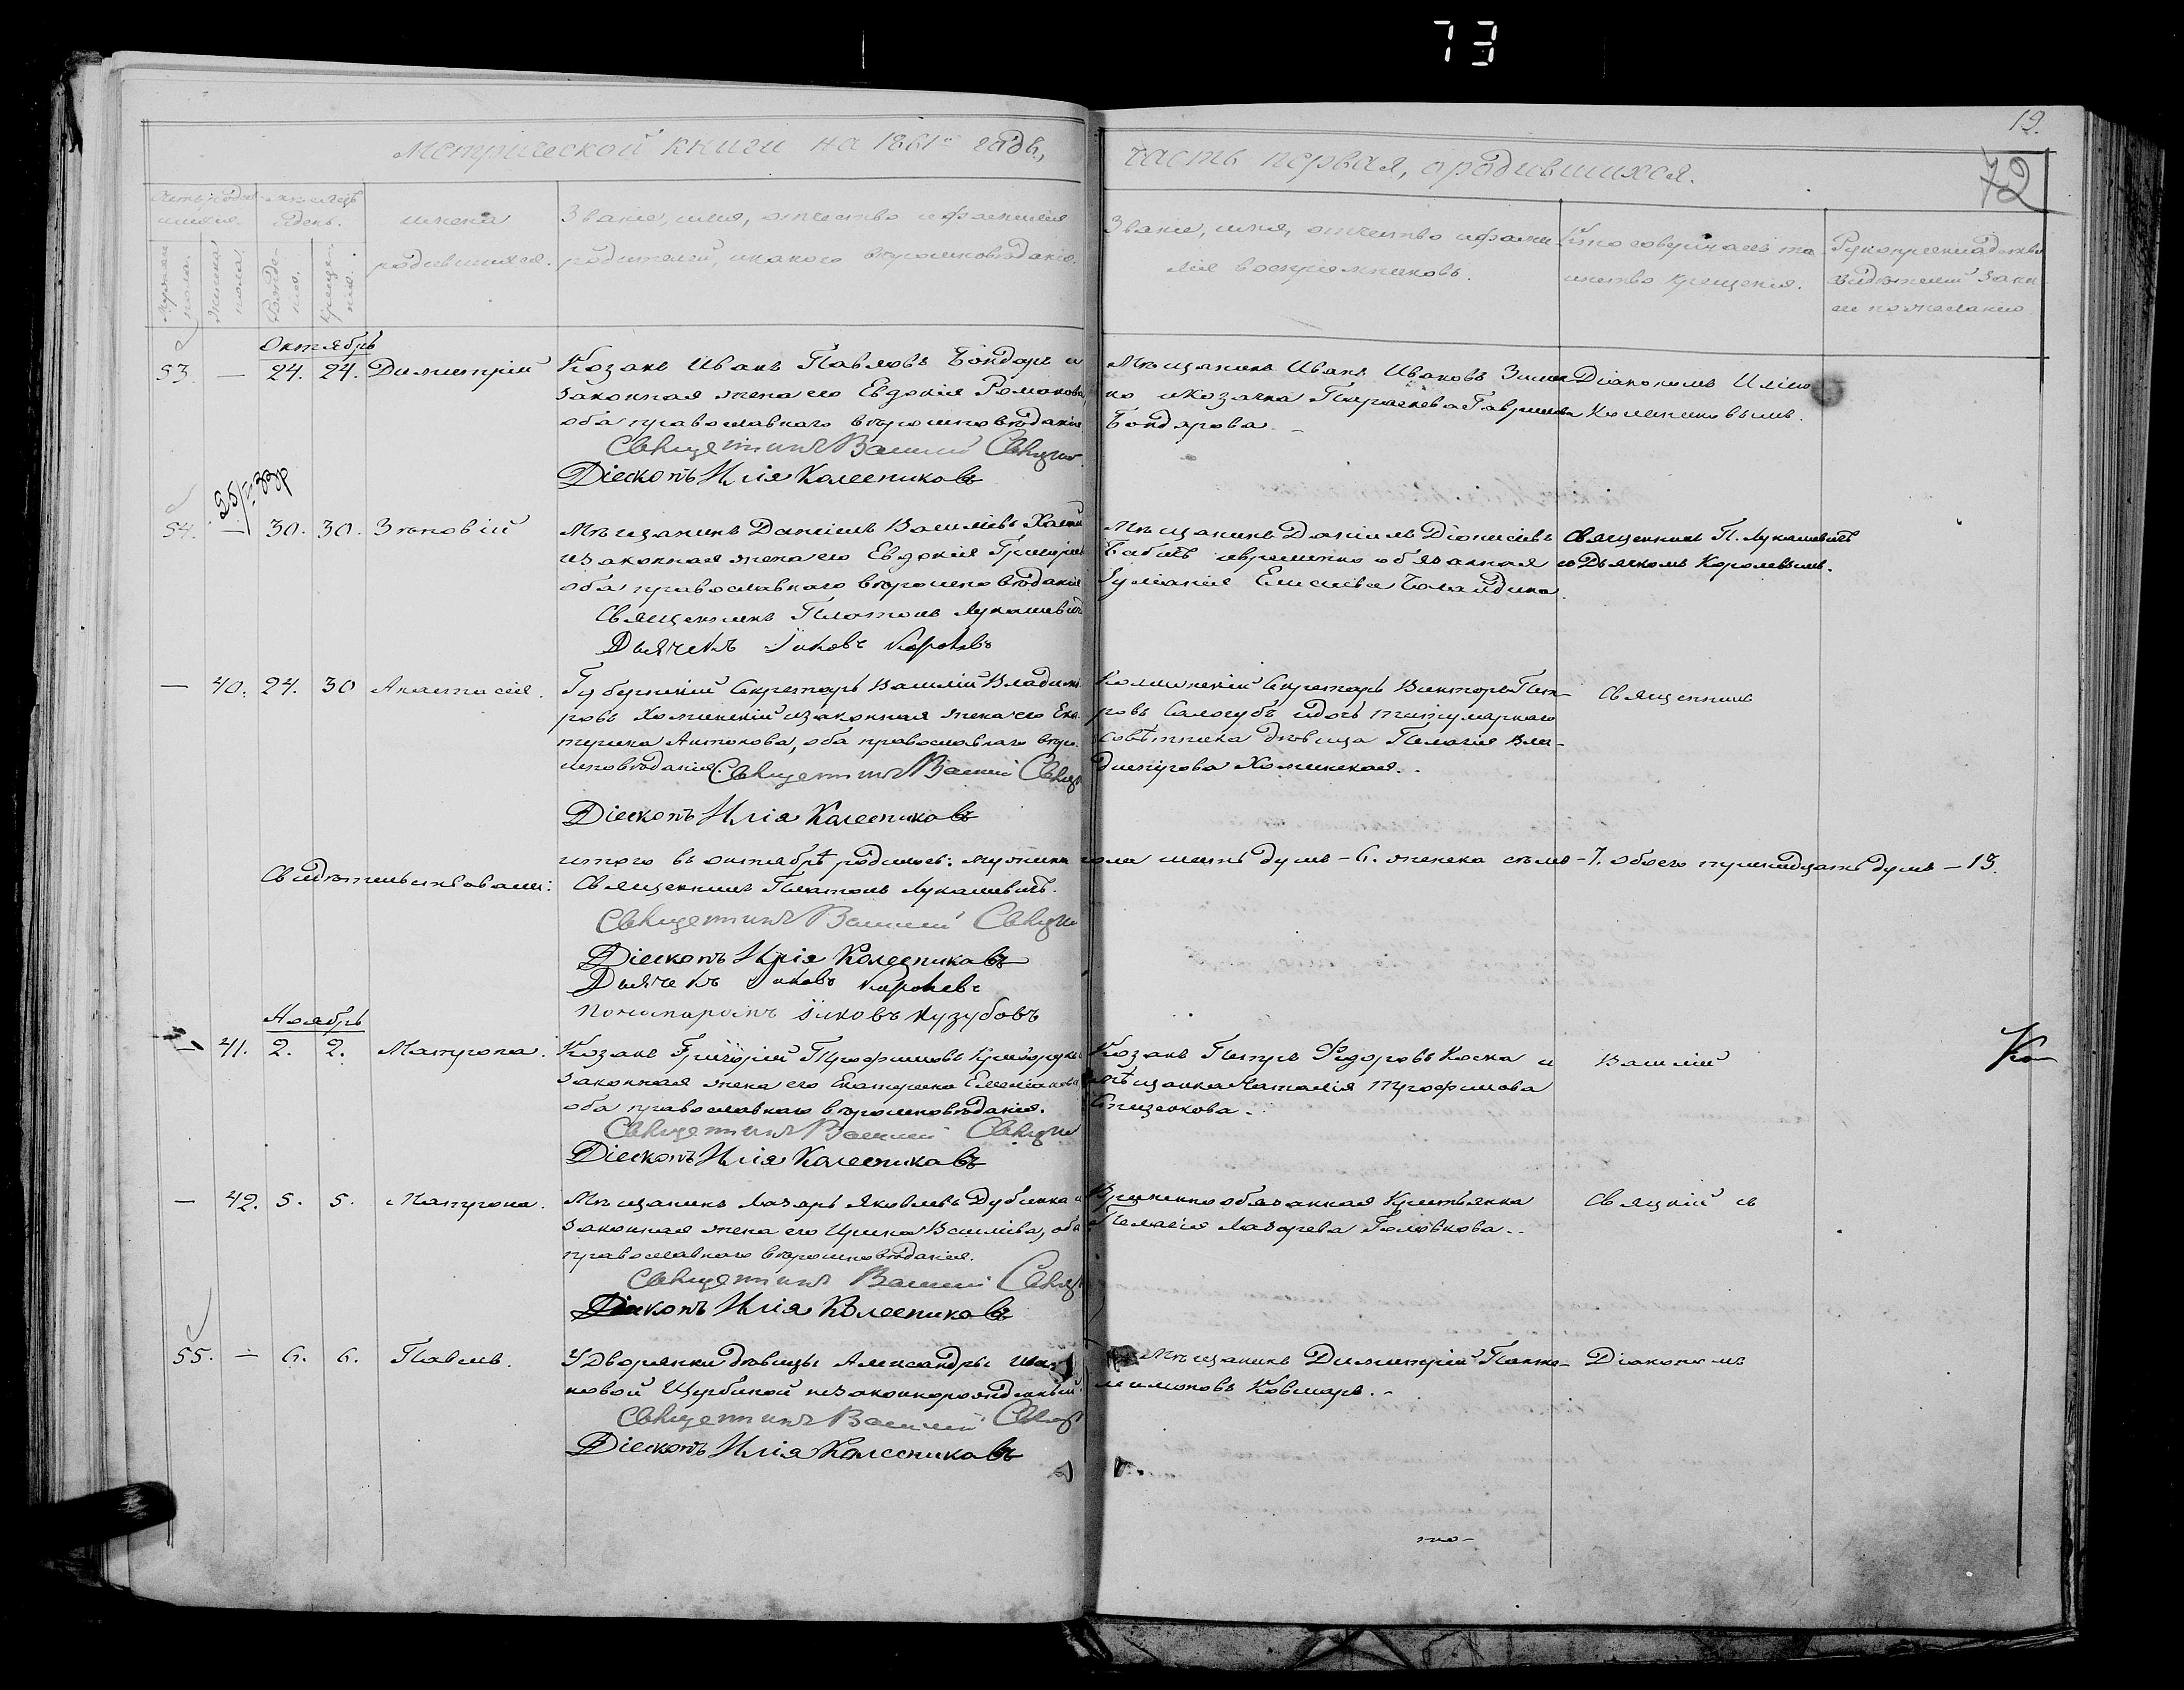 73
19.
72
Метрической книги на 1861й годъ,
часть первая, о родившихся.
Счетъ родившихся.
Мужеска пола.
Женска пола.
Мѣсяцъ день.
Рожденія.
Крещенія.
Имена родившихся.
Званіе, имя, отчество и фамилія
родителей, и какого вѣроисповѣданія.
Званіе, имя, отчество и фами-
лія воспріемниковъ.
Кто совершалъ та
инство крещенія.
Рукоприкладство
свидѣтелей записи
по желанію
Октябрь
53. — 24. 24. Димитрій
Козакъ Иванъ Павловъ Бондарь и
законная жена его Евдокія Романова,
оба православнаго вѣроисповѣданія
Священникъ Василій
Діаконъ Илія Колесниковъ
Мѣщанинъ Иванъ Ивановъ
ко и Козачка Параскева Гаврилова
Бондарова.
Діакономъ Иліею
Колесниковымъ.
54. — 30. 30. Зѣновій
Мѣщанинъ Даніилъ Василіевъ
и законная жена его Евдокія
оба православнаго вѣроисповѣданія
Священникъ Платонъ Лукашевичъ
Дьячекъ Іаковъ Королевъ
Мѣщанинъ Даніилъ Діонисіевъ
Бабичъ и временно обязанная
Іуліанія Елисѣева
Священникъ П. Лукашевичъ
съ Дьячкомъ Королевымъ.
— 40. 24. 30 Анастасія.
Губернскій Секретарь Василій Владимі
ровъ Хоминскій и законная жена его Ека
терина Антонова, оба православнаго вѣро
исповѣданія. Священникъ Василій
Діаконъ Илія Колесниковъ
Коллежскій Секретарь Викторъ Пет-
ровъ Сологубъ и дочь титулярнаго
Совѣтника дѣвица Пелагія Вла-
димірова Хоминская.
Священник
Итого въ октябрѣ родилось: мужеска пола шесть душъ – 6. женска семь – 7. обоего тринадцать душъ – 13.
Свидѣтельствовали: Священникъ Платонъ Лукашевичъ.
Священникъ Василій
Діаконъ Илія Колесниковъ
Дьячекъ Іаковъ Королевъ
Пономарь Іаковъ Кузубовъ
Ноябрь
— 41. 2. 2. Матрона.
Козакъ Григорій Трофимовъ
законная жена его Екатерина Емеліанова
оба православнаго вѣроисповѣданія.
Священникъ Василій
Діаконъ Илія Колесниковъ
Козакъ Петръ Федоровъ Коска и
мѣщанка Наталія Трофимова
Василій
— 42. 5. 5. Матрона.
Мѣщанинъ Лазарь Яковлевъ Дубинка и
законная жена его Ирина Василіева, оба
православнаго вѣроисповѣданія.
Священникъ Василій
Діаконъ Илія Колесниковъ
Временнообязанная Крестьянка
Пелагія Лазарева Головкова.
55. — 6. 6. Павелъ.
У Дворянки дѣвицы Александры
новой Щербиной незаконнорожденный.
Священникъ Василій
Діаконъ Илія Колесниковъ
Мѣщанинъ Димитрій Панте-
леимоновъ Ковшарь.
Діакономъ